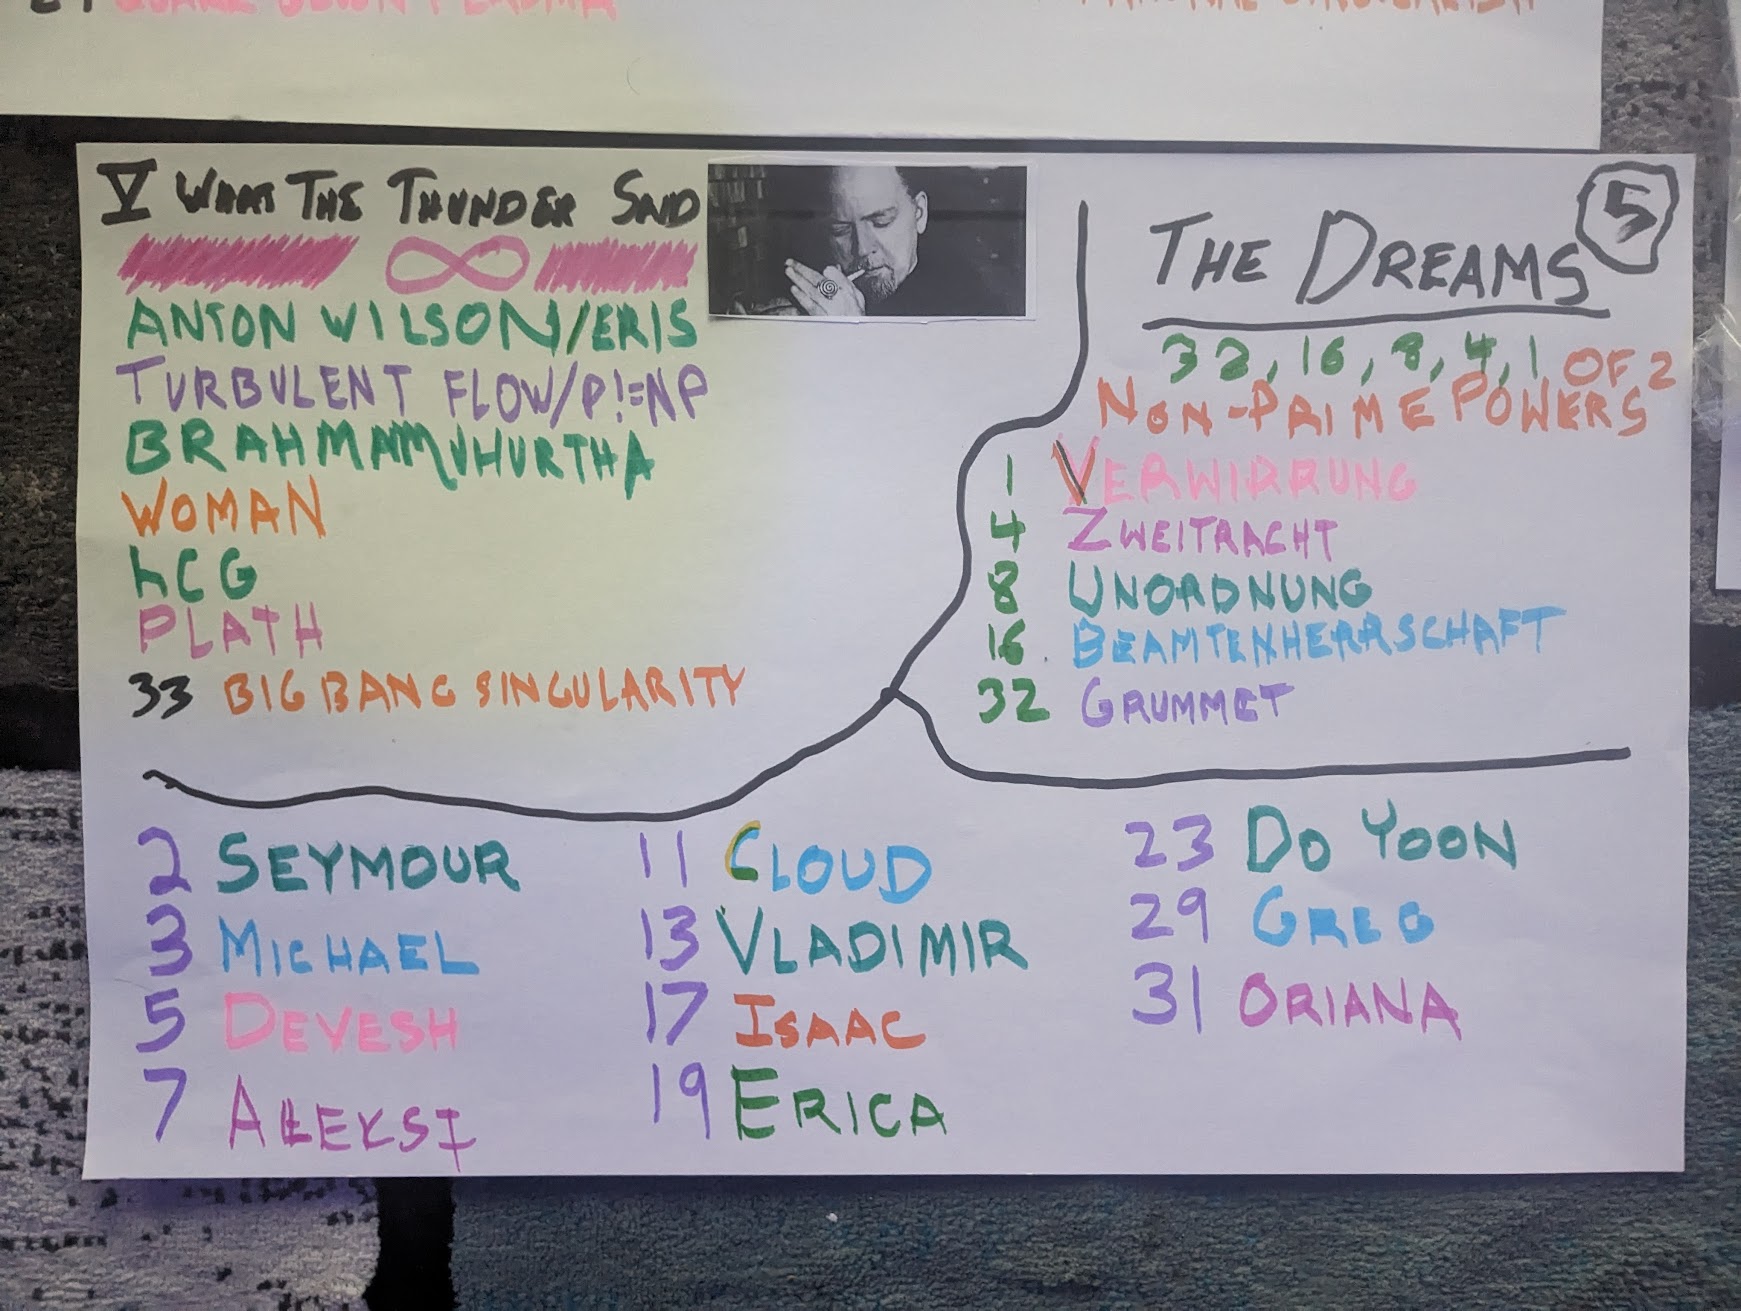 V WHAT THE THUNDER SAID
∞
ANTON WILSON/ERIS
TURBULENT FLOW/P!=NP
BRAHMAMUHURTHA
WOMAN
hCG
PLATH
33 BIG BANG SINGULARITY
THE DREAMS
5
32, 16, 8, 4, 1 OF 2
NON-PRIME POWERS
1 VERWIRRUNG
4 ZWEITRACHT
8 UNORDNUNG
16 BEAMTENHERRSCHAFT
32 GRUMMET
2 SEYMOUR
3 MICHAEL
5 DEVESH
7 ALEKSI
11 CLOUD
13 VLADIMIR
17 ISAAC
19 ERICA
23 DO YOON
29 GREG
31 ORIANA